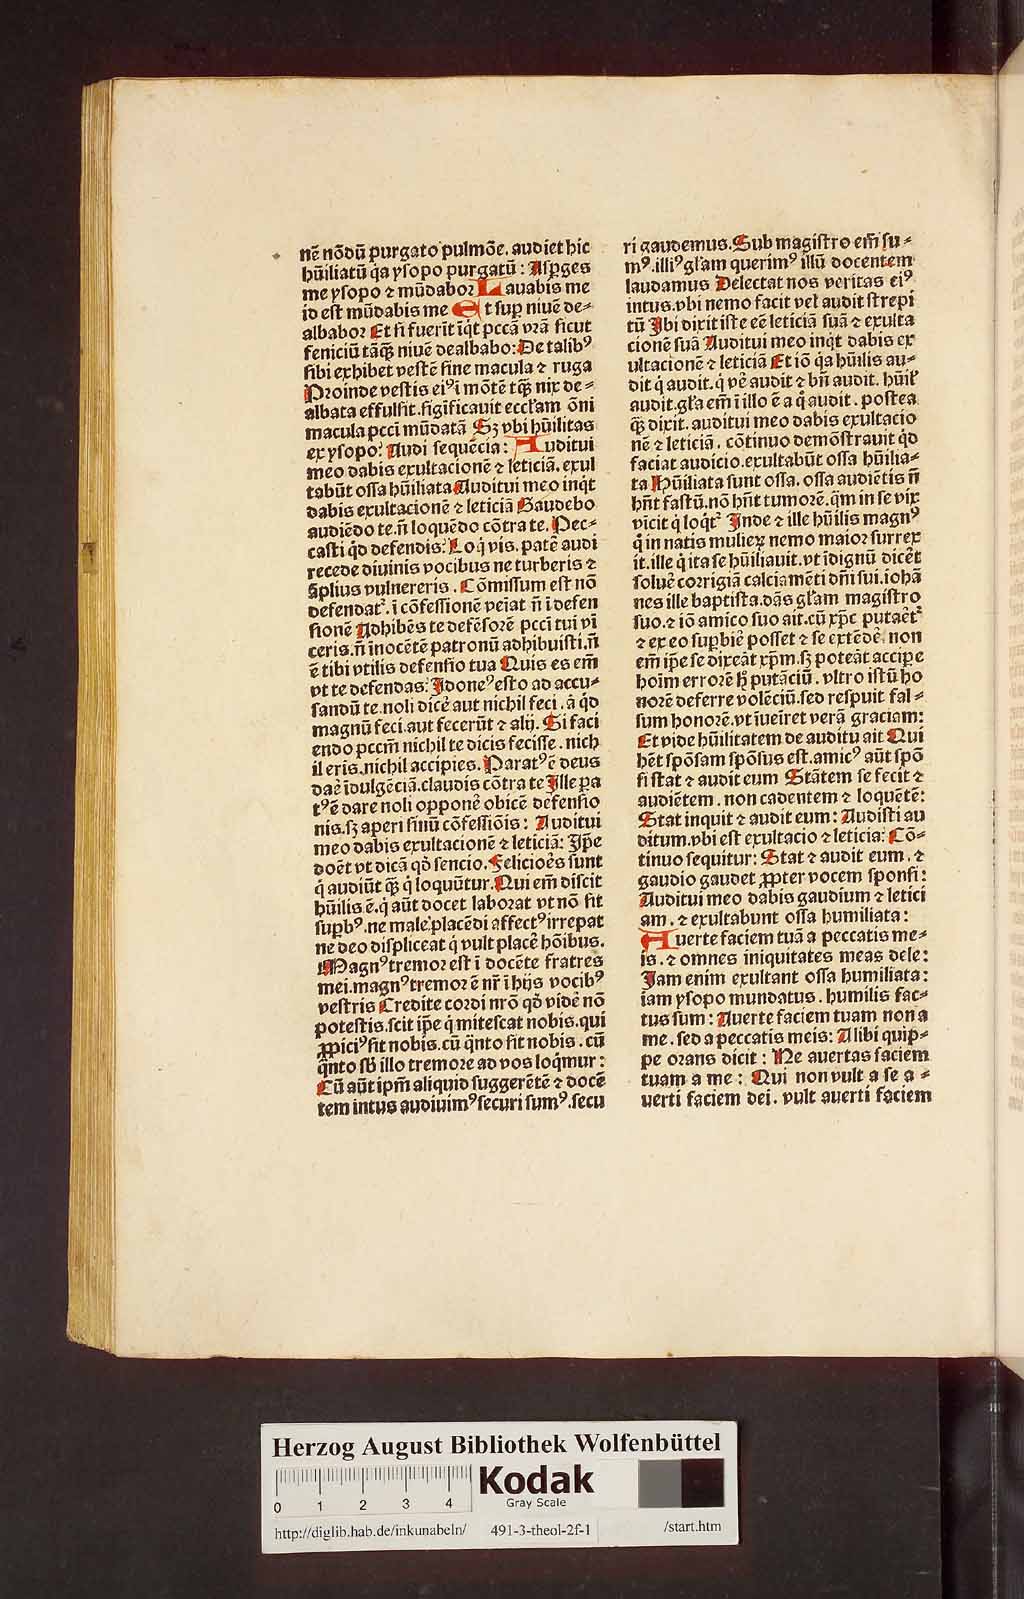 nē nōdū purgato pulmōe. audiet hic
hūiliatū q̄a ysopo purgatū: Asp̄ges
me ysopo ⁊ mūdabor Lauabis me
id est mūdabis me Et sup̱ niuē de⸗
albabor Et si fuerīt īq̇t pccā vrā sicut
feniciū tāq̄ȝ niuē dealbabo: De talibꝰ
sibi exhibet vestē sine macula ⁊ ruga
Proinde vestis eiꝰ ī mōtē tq̄ȝ nix de⸗
albata effulsit. significauit eccl̄am ōni
macula pccī mūdatā Sȝ vbi hūilitas
ex ysopo: Audi sequēcia: Auditui
meo dabis exultacionē ⁊ leticiā. exul
tabūt ossa hūiliata Auditui meo inq̇t
dabis exultacionē ⁊ leticiā Gaudebo
audiēdo te. n̄ loquēdo cōtra te. Pec⸗
casti q̇d defendis: Loq̇ vis. patē audi
recede diuinis vocibus ne turberis ⁊
āplius vulnereris. Cōmissum est nō
defendatᷣ. ī cōfessionē veīat n̄ ī defen
sionē Adhibēs te defēsorē pccī tui vī
ceris. n̄ īnocētē patronū adhibuisti. n̄
ē tibi vtilis defensio tua Quis es em̄
vt te defendas: Idoneꝰ esto ad accu⸗
sandū te. noli dicē aut nichil feci. a q̇d
magnū feci. aut fecerūt ⁊ alij. Si faci
endo pccm̄ nichil te dicis fecisse. nich
il eris. nichil accipies. Paratꝰ ē deus
daē īdulgēciā. claudis cōtra te Ille pa
tꝰ ē dare noli opponē obicē defensio
nis. sȝ aperi sinū cōfessiōis: Auditui
meo dabis exultacionē ⁊ leticiā: Ip̄e
doēt vt dicā qd̄ sencio. Felicioēs sunt
q̇ audiūt q̄ȝ q̇ loquūtur. Qui em̄ discit
hūilis ē. q̇ aūt docet laborat vt nō sit
sup̱bꝰ. ne male placēdi affectꝰ irrepat
ne deo displiceat q̇ vult placē hōibus.
Magnꝰ tremor est ī docēte fratres
mei. magnꝰ tremor ē nr̄ ī hijs vocibꝰ
vestris Credite cordi nrō qd̄ vidē nō
potestis. scit ip̄e q̇ mitescat nobis. qui
ꝓpiciꝰ sit nobis. cū q̄nto sit nobis. cū
q̄nto sb̄ illo tremore ad vos loq̄mur:
Cū aūt ipm̄ aliquid suggerētē ⁊ docē
tem intus audiuimꝰ securi sumꝰ. secu
ri gaudemus. Sub magistro em̄ su⸗
mꝰ. illiꝰ gl̄am querimꝰ illū docentem
laudamus Delectat nos veritas eiꝰ
intus. vbi nemo facit vel audit strepi
tū Ibi dixit iste eē leticiā suā ⁊ exulta
cionē suā Auditui meo inq̇t dabis ex
ultacionē ⁊ leticiā Et iō q̄a hūilis au⸗
dit q̇ audit. q̇ vē audit ⁊ bn̄ audit. hūil̄
audit. gl̄a em̄ ī illo ē a q̇ audit. postea
q̄ȝ dixit. auditui meo dabis exultacio
nē ⁊ leticiā. cōtinuo demōstrauit q̇d
faciat audicio. exultabūt ossa hūilia⸗
ta Hūiliata sunt ossa. ossa audiētis n̄
hn̄t fastū. nō hn̄t tumorē. q̄m in se vix
vīcit q̇ loqᷣtᷣ Inde ⁊ ille hūilis magnꝰ
q̇ in natis mulieꝝ nemo maior surrex
it. ille q̇ ita se hūiliauit. vt īdignū dicēt
soluē corrigiā calciamēti dn̄i sui. iohā
nes ille baptista. dās gl̄am magistro
suo. ⁊ iō amico suo ait. cū xp̄c putaētᷣ
⁊ ex eo sup̱biē posset ⁊ se extēdē. non
em̄ ip̄e se dixeāt xp̄m. sȝ poteāt accipe
hoīm errorē hꝫ putāciū. vltro istū ho
norē deferre volēciū. sed respuit fal⸗
sum honorē. vt īueīret verā graciam:
Et vide hūilitatem de auditu ait Qui
hēt spōsam spōsus est. amicꝰ aūt spō
si stat ⁊ audit eum Stātem se fecit ⁊
audiētem. non cadentem ⁊ loquētē:
Stat inquit ⁊ audit eum: Audisti au
ditum. vbi est exultacio ⁊ leticia: Cō⸗
tinuo sequitur: Stat ⁊ audit eum. ⁊
gaudio gaudet ꝓpter vocem sponsi:
Auditui meo dabis gaudium ⁊ letici
am. ⁊ exultabunt ossa humiliata:
Auerte faciem tuā a peccatis me⸗
is. ⁊ omnes iniquitates meas dele:
Iam enim exultant ossa humiliata:
iam ysopo mundatus. humilis fac⸗
tus sum: Auerte faciem tuam non a
me. sed a peccatis meis: Alibi quip⸗
pe orans dicit: Ne auertas faciem
tuam a me: Qui non vult a se a⸗
uerti faciem dei. vult auerti faciem
Herzog August Bibliothek Wolfenbüttel
Kodak
Gray Scale
0 1 2 3 4
http://diglib.hab.de/inkunabeln/ 491-3-theol-2f-1 /start.htm